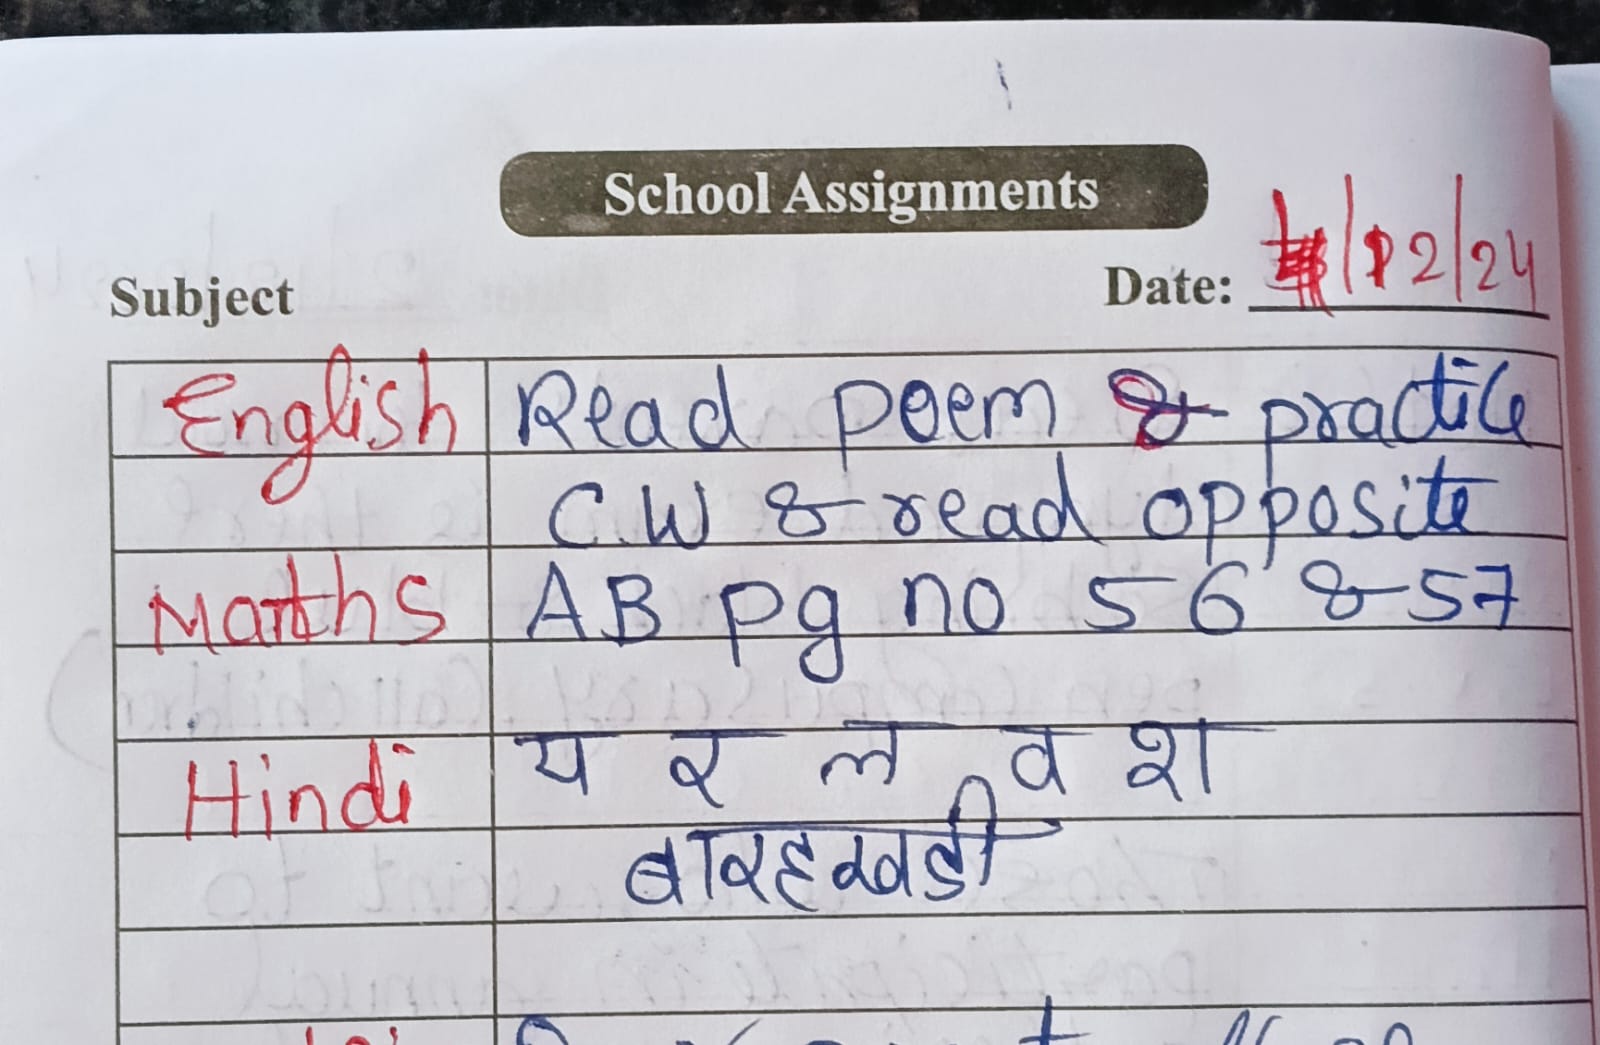 School Assignments
Subject Date: /12/24
English Read poem & practice
C.W & read opposite
Maths AB pg no 56 & 57
Hindi य र ल व श
बारहखडी